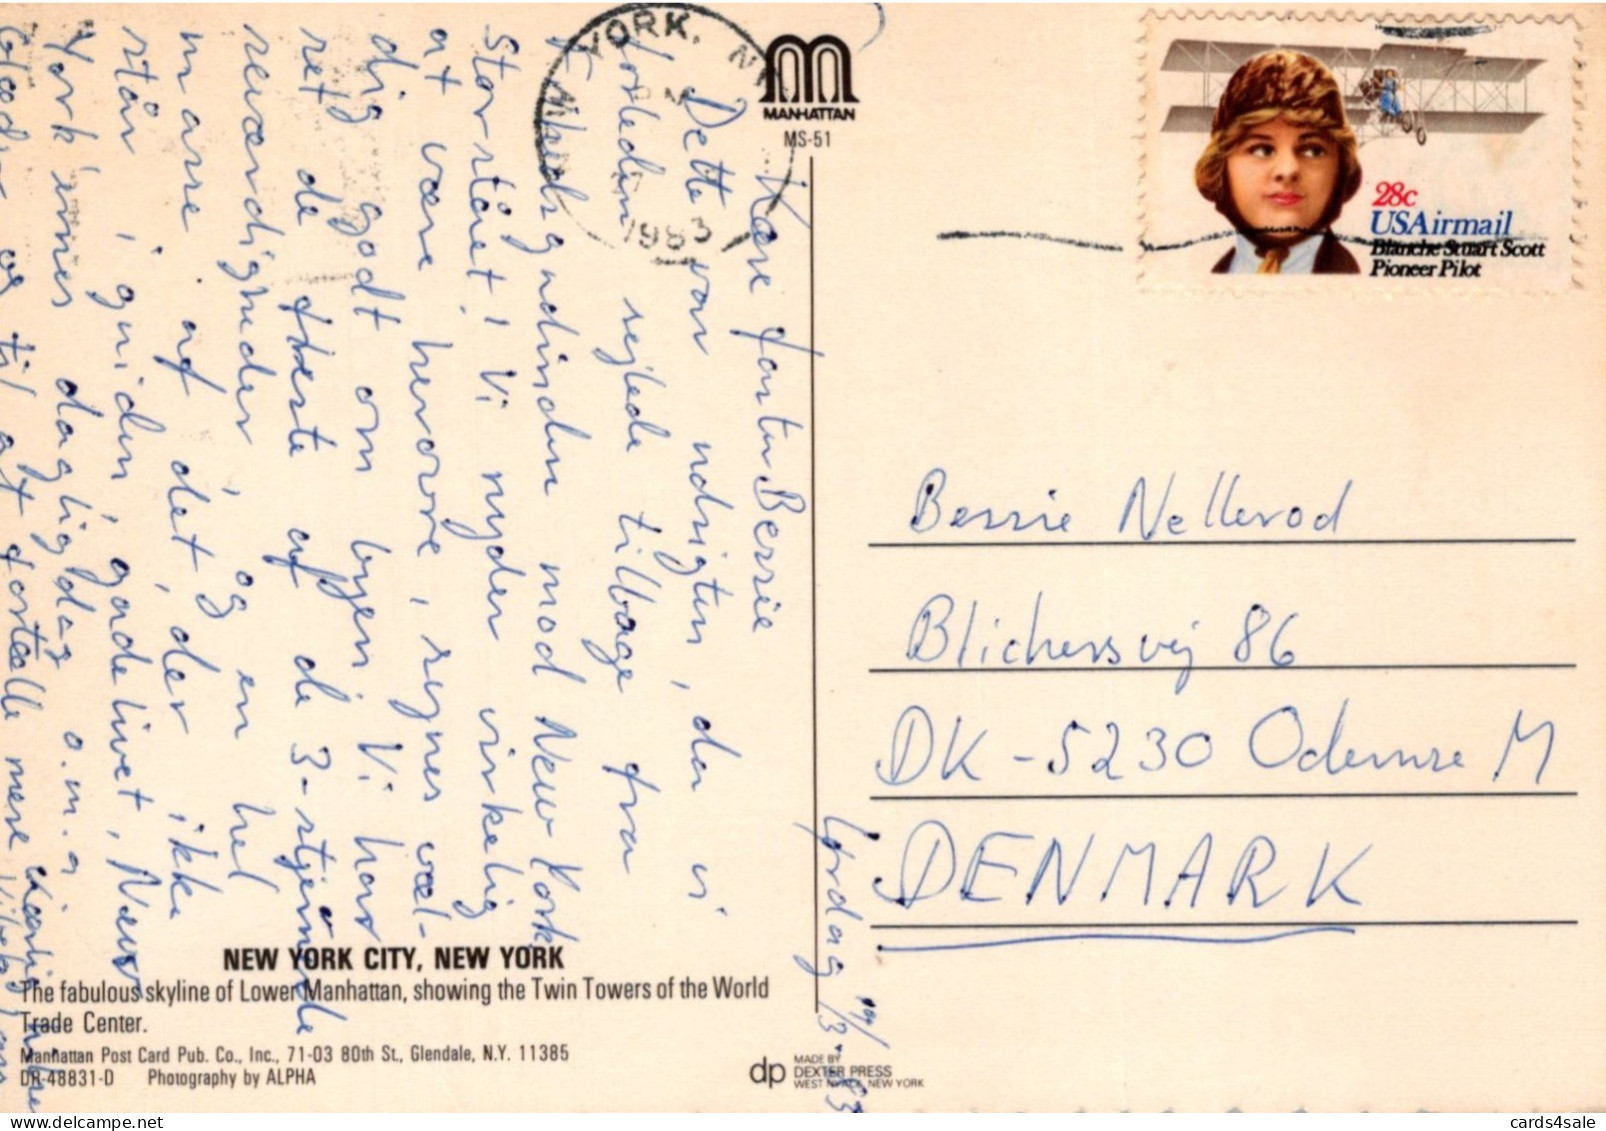 YORK, NY
1983
MANHATTAN
MS-51
28c
USAirmail
Blanche Stuart Scott
Pioneer Pilot
Lørdag 13-83
Kære faster Bessie
Dette var udsigten, da vi
forleden sejlede tilbage fra
Frihedsgudinden mod New York
Storslået! Vi nyder virkelig
at være herovre, synes væl-
dig godt om byen. Vi har
set de fleste af de 3-stjernede
seværdigheder, og en hel
masse af det, der ikke
står i guiden, gadelivet, New
York'ernes dagligdag o.m.a
Glæder os til at fortælle mere
Kærlig hilsen
Bessie Nellerod
Blichersvej 86
DK-5230 Odense M
DENMARK
NEW YORK CITY, NEW YORK
The fabulous skyline of Lower Manhattan, showing the Twin Towers of the World
Trade Center.
Manhattan Post Card Pub. Co., Inc., 71-03 80th St., Glendale, N.Y. 11385
DR-48831-D Photography by ALPHA
dp MADE BY
DEXTER PRESS
WEST NYACK, NEW YORK
cards4sale